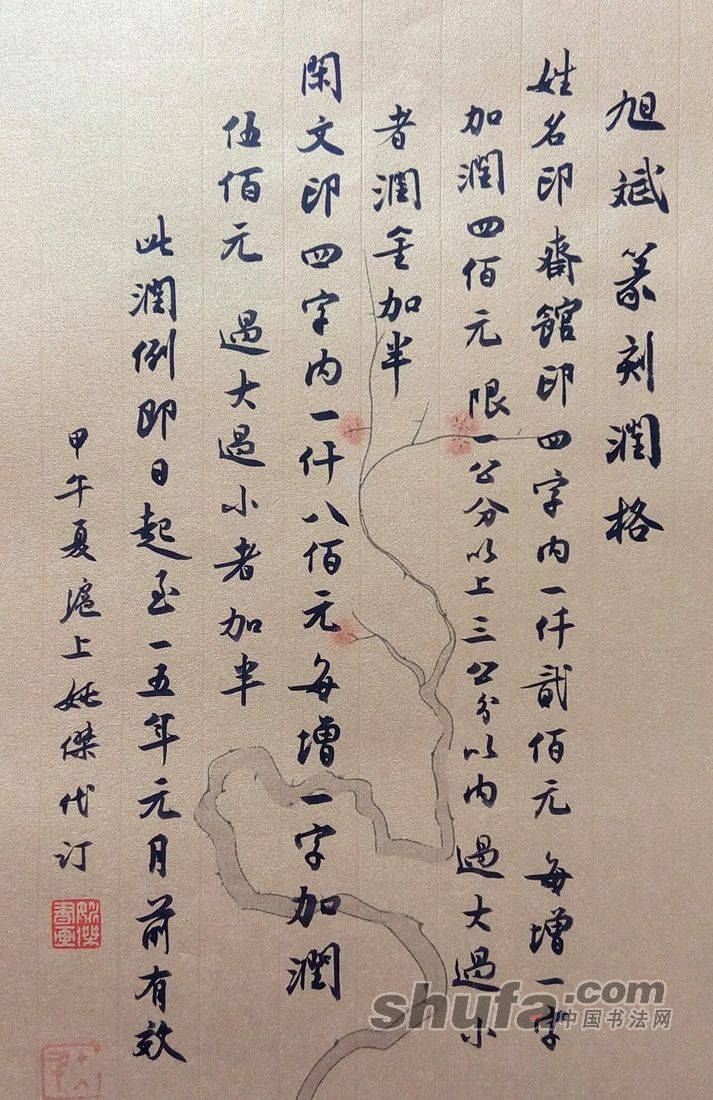 旭斌篆刻潤格
姓名印齋館印四字内一仟貳佰元每增一字
加潤四佰元限一公分以上三公分以内過大過小
者潤金加半
閑文印四字内一仟八佰元每增一字加潤
伍佰元過大過小者加半
此潤例即日起至一五年元月前有效
甲午夏滬上姚傑代订
姚傑書畫
shufa.com
中国书法网